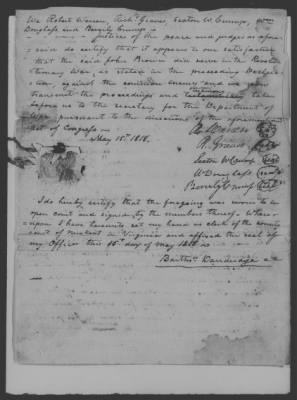 We Robert Warren, Richd. Graves, Seaton W. Crump, Wm
Douglass and Beverly Crump
justices of the peace and judges afore
said do certify that it appears to our satisfaction
that the said John Brown did serve in the Revolu
tionary War, as stated in the preceding Declara
tion, against the common enemy and we now
transmit the proceedings and testimony taken
before us to the Secretary for the Department of
War pursuant to the directions of the aforesaid
act of Congress
May 15th 1818.
R. Warren
R. Graves
Seaton W Crump
W Douglass
Beverly Crump
I do hereby certify that the foregoing was sworn to in
open court and signed by the members thereof. Where
upon I have hereunto set my hand as clerk of the county
court of in Virginia and affixed the seal of
my Office this 15th day of May 1818
Bartho. Dandridge